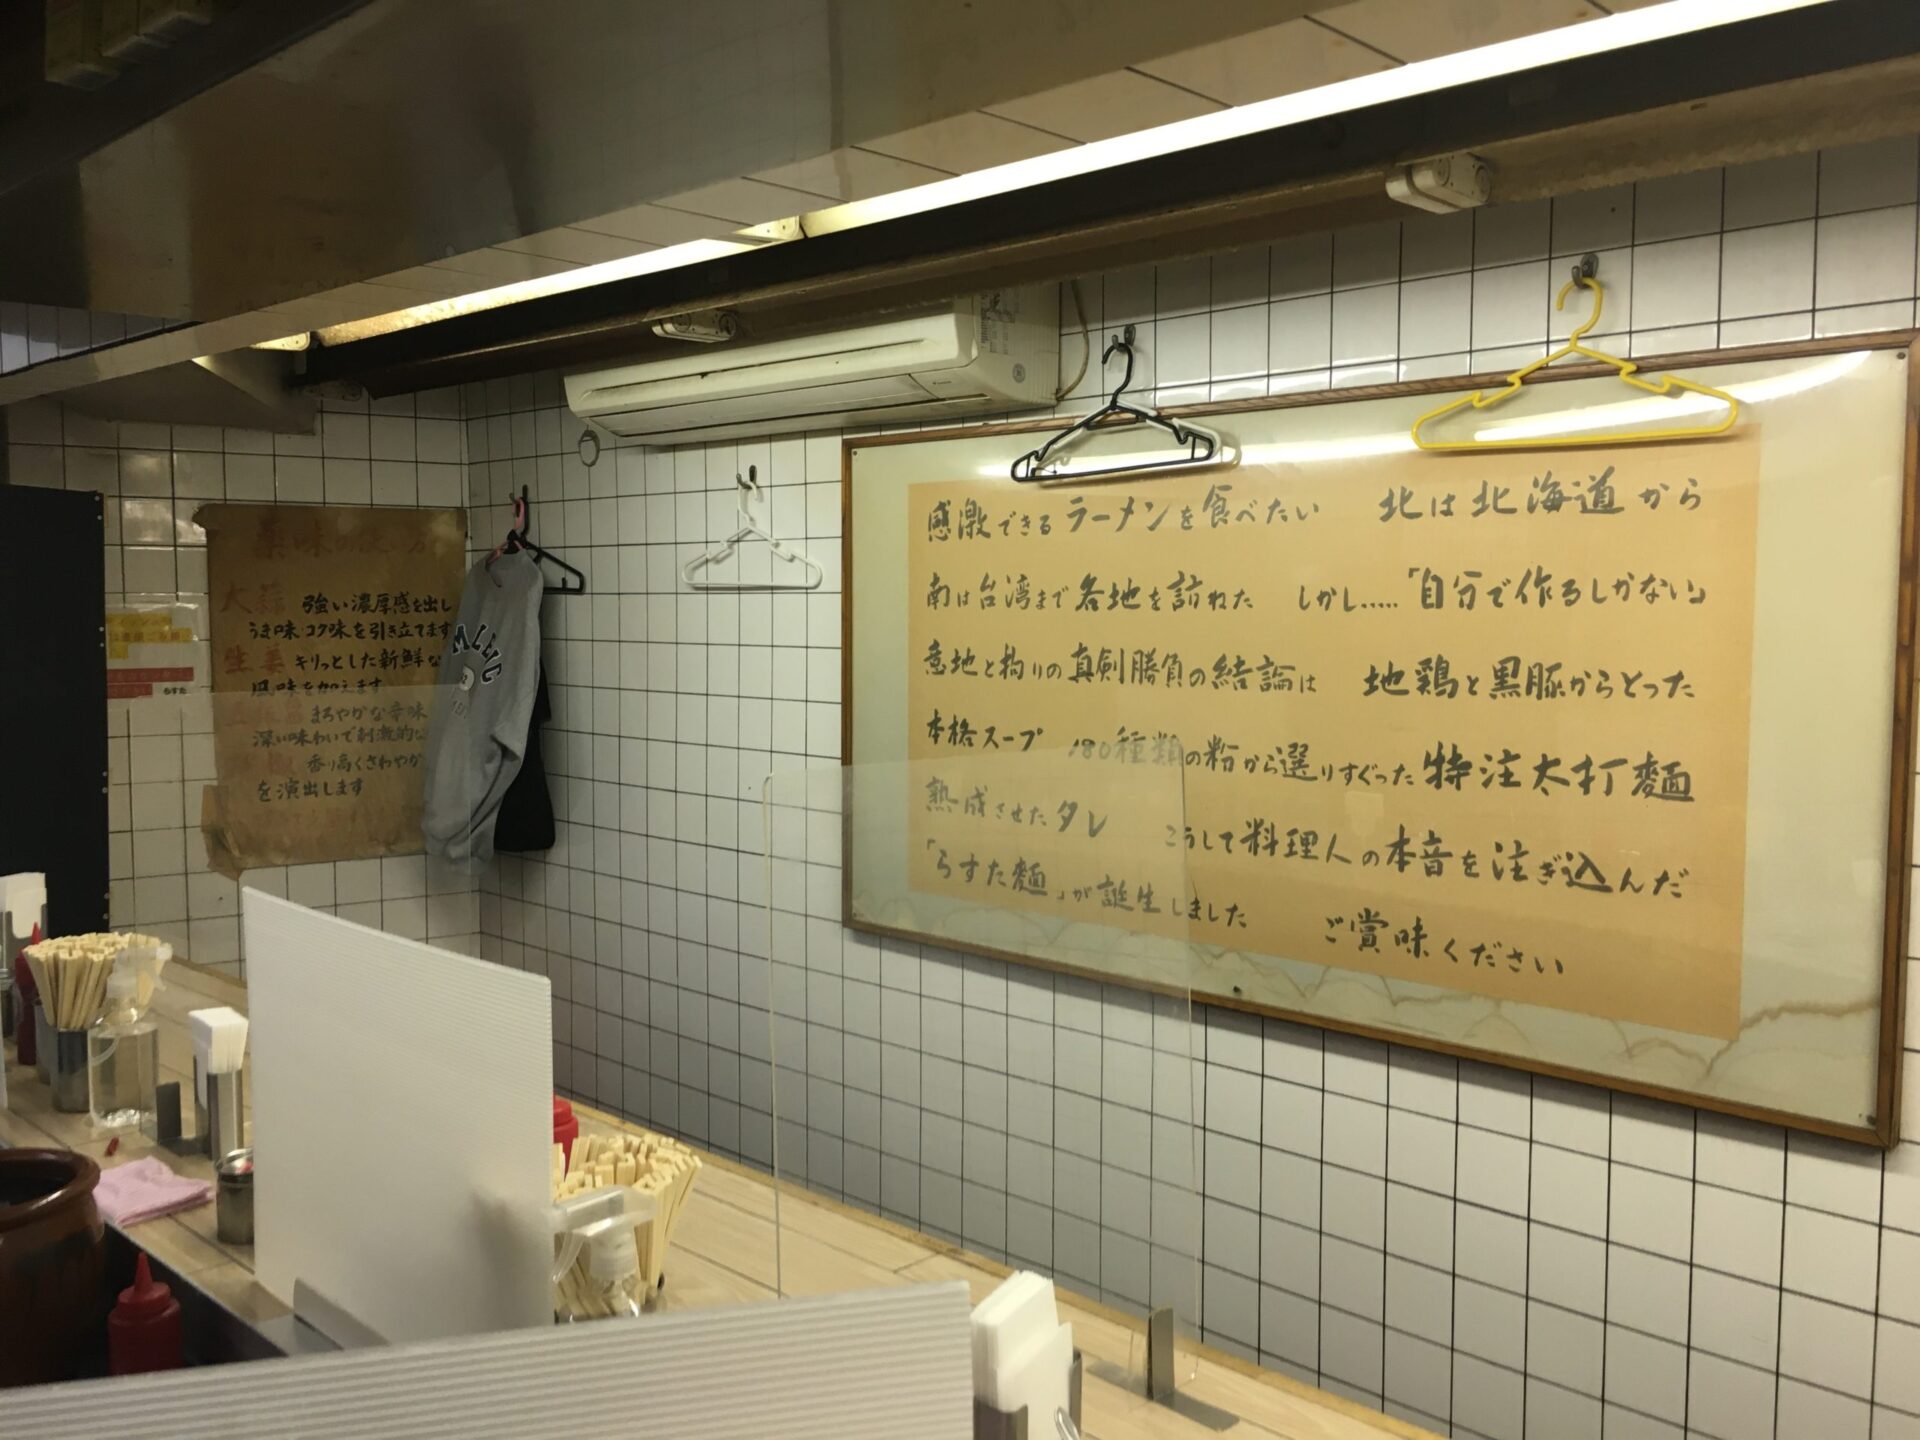 薬味の使い方
大蒜 強い濃厚感を出し
うま味 コク味を引き立てます
生姜 キリっとした新鮮な
風味を加えます
まろやかな辛味
深い味わいで刺激的な
香り高くさわやか
を演出します
らすた
感激できるラーメンを食べたい 北は北海道から
南は台湾まで各地を訪ねた しかし.....「自分で作るしかない」
意地と拘りの真剣勝負の結論は 地鶏と黒豚からとった
本格スープ 180種類の粉から選りすぐった特注太打麺
熟成させたタレ こうして料理人の本音を注ぎ込んだ
「らすた麺」が誕生しました ご賞味ください